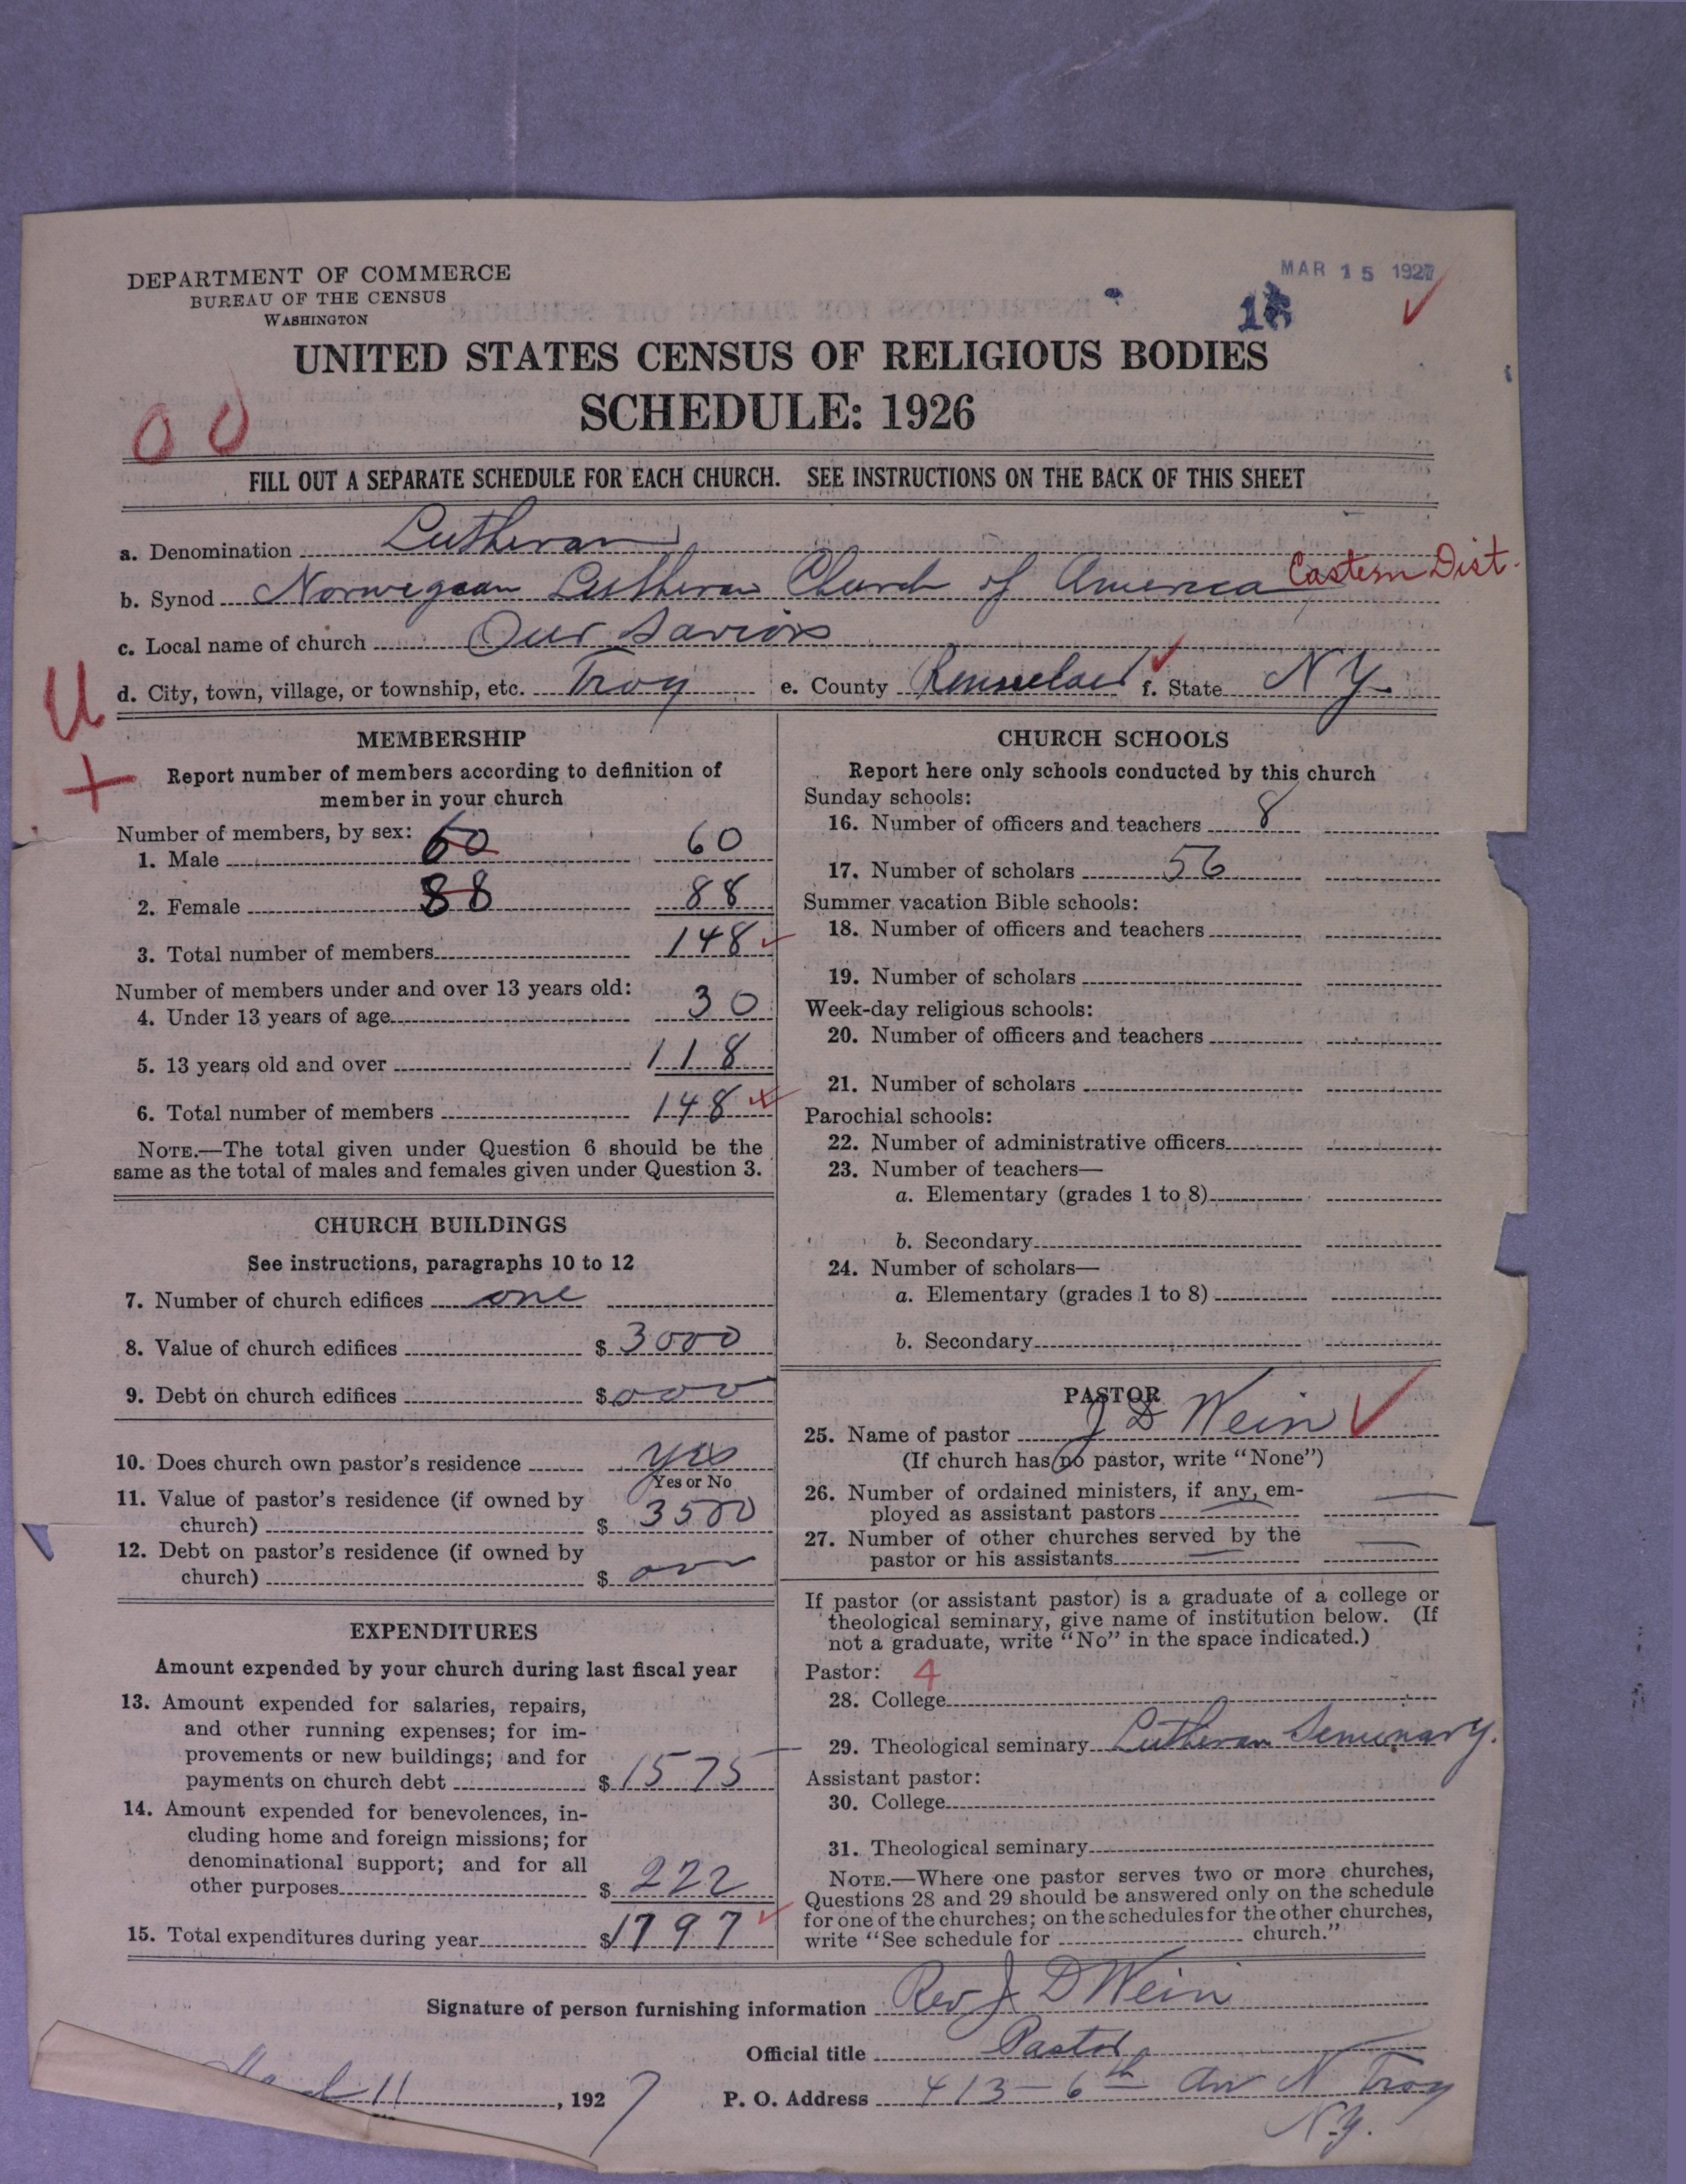 DEPARTMENT OF COMMERCE
BUREAU OF THE CENSUS
WASHINGTON
MAR 15 1927
UNITED STATES CENSUS OF RELIGIOUS BODIES
SCHEDULE: 1926
00
FILL OUT A SEPARATE SCHEDULE FOR EACH CHURCH. SEE INSTRUCTIONS ON THE BACK OF THIS SHEET
a. Denomination Lutheran
b. Synod Norwegean Lutheran Church of America Eastern Dist.
c. Local name of church Our Saviors
d. City, town, village, or township, etc. Troy e. County Rensselaer f. State N Y.
U
+
MEMBERSHIP
Report number of members according to definition of
member in your church
Number of members, by sex:
1. Male 60 60
2. Female 88 88
3. Total number of members 148
Number of members under and over 13 years old:
4. Under 13 years of age 30
5. 13 years old and over 118
6. Total number of members 148
NOTE.—The total given under Question 6 should be the
same as the total of males and females given under Question 3.
CHURCH BUILDINGS
See instructions, paragraphs 10 to 12
7. Number of church edifices one
8. Value of church edifices $ 3000
9. Debt on church edifices $ 000
10. Does church own pastor's residence yes
Yes or No
11. Value of pastor's residence (if owned by
church) $ 3500
12. Debt on pastor's residence (if owned by
church) $ 000
EXPENDITURES
Amount expended by your church during last fiscal year
13. Amount expended for salaries, repairs,
and other running expenses; for im-
provements or new buildings; and for
payments on church debt $ 1575
14. Amount expended for benevolences, in-
cluding home and foreign missions; for
denominational support; and for all
other purposes $ 222
15. Total expenditures during year $ 1797
CHURCH SCHOOLS
Report here only schools conducted by this church
Sunday schools:
16. Number of officers and teachers 8
17. Number of scholars 56
Summer vacation Bible schools:
18. Number of officers and teachers
19. Number of scholars
Week-day religious schools:
20. Number of officers and teachers
21. Number of scholars
Parochial schools:
22. Number of administrative officers
23. Number of teachers—
a. Elementary (grades 1 to 8)
b. Secondary
24. Number of scholars—
a. Elementary (grades 1 to 8)
b. Secondary
PASTOR
25. Name of pastor J D Wein
(If church has no pastor, write "None")
26. Number of ordained ministers, if any, em-
ployed as assistant pastors
27. Number of other churches served by the
pastor or his assistants
If pastor (or assistant pastor) is a graduate of a college or
theological seminary, give name of institution below. (If
not a graduate, write "No" in the space indicated.)
Pastor: 4
28. College
29. Theological seminary Lutheran Seminary.
Assistant pastor:
30. College
31. Theological seminary
NOTE.—Where one pastor serves two or more churches,
Questions 28 and 29 should be answered only on the schedule
for one of the churches; on the schedules for the other churches,
write "See schedule for church."
Signature of person furnishing information Rev J D Wein
Official title Pastor
March 11, 1927 P. O. Address 413 - 6th Av N Troy
N.Y.